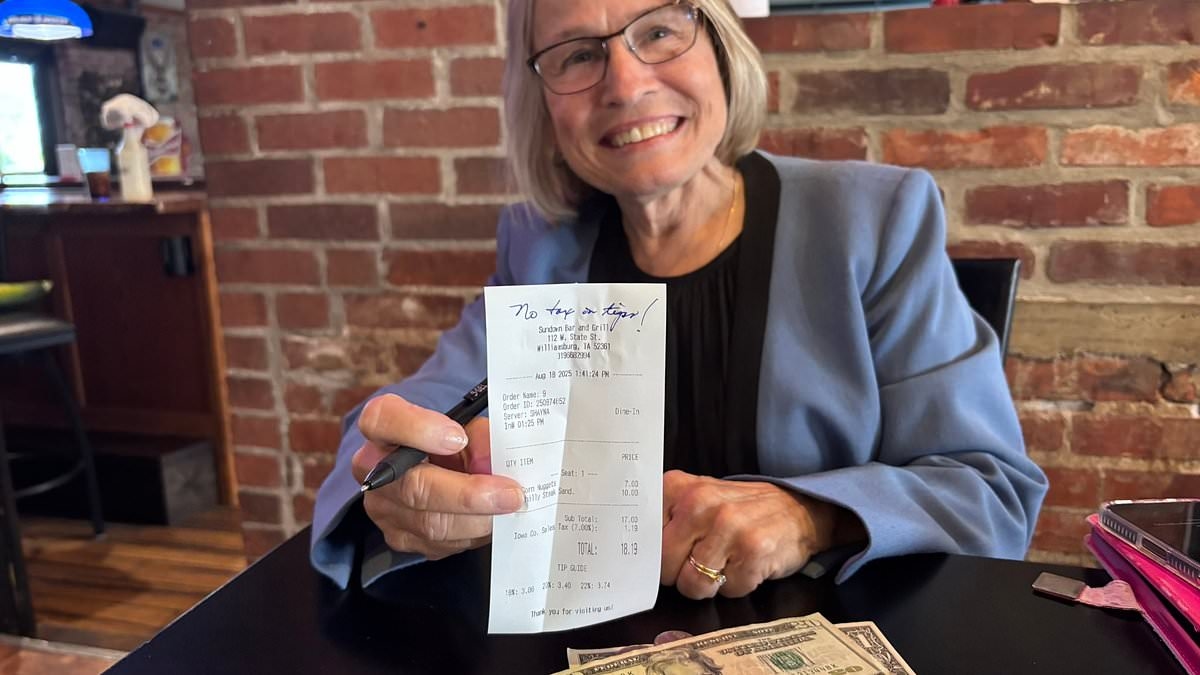 No tax on tips!
Sundown Bar and Grill
112 W. State St.
Williamsburg, IA 52361
3196682994
Aug 18 2025 1:41:24 PM
Order Name: 9
Order ID: 250874652
Server: SHAYNA
Dine-In
In# 01:25 PM
QTY ITEM PRICE
--- Seat: 1 ---
Corn Nuggets 7.00
Philly Steak Sand. 10.00
Sub Total: 17.00
Iowa Co. Sales Tax (7.00%): 1.19
TOTAL: 18.19
TIP GUIDE
18%: 3.06 20%: 3.40 22%: 3.74
Thank you for visiting us!
FEDERAL RESERVE NOTE